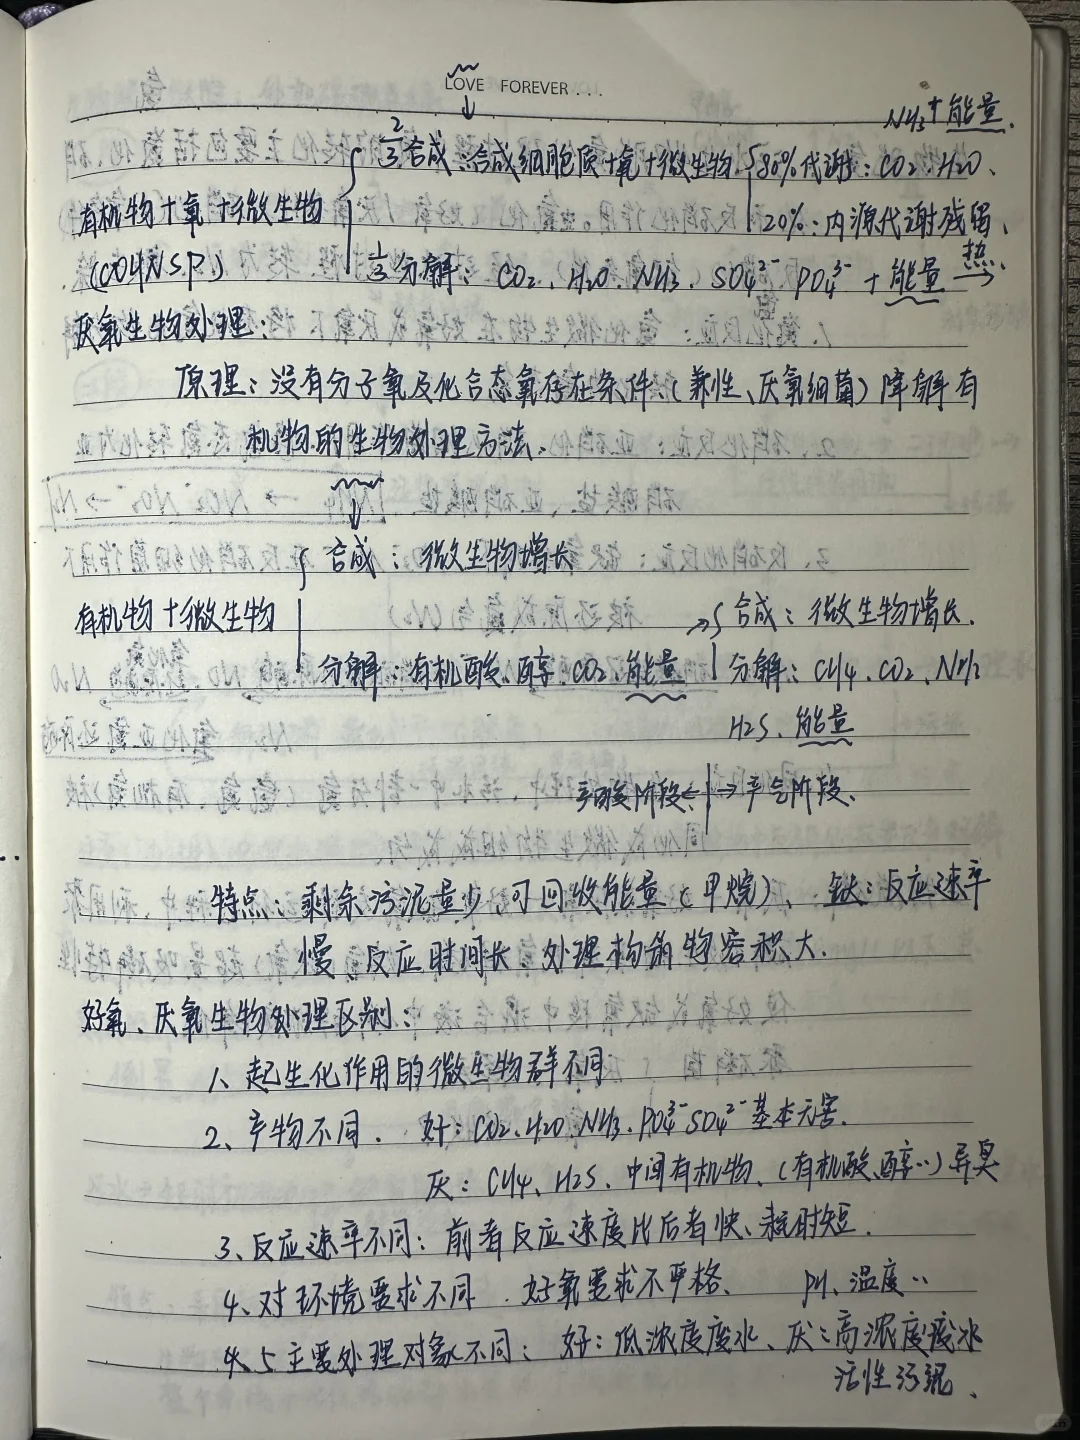 LOVE FOREVER...
NH3+能量.
2/3合成:合成细胞质+氧+微生物 80%代谢:CO2.H2O、
有机物+氧+微生物 20%:内源代谢残留、
(COHNSP) 1/3分解:CO2.H2O.NH3.SO4²⁻ PO4³⁻+能量 热→
厌氧生物处理:
原理:没有分子氧及化合态氧存在条件(兼性、厌氧细菌)降解有
机物的生物处理方法、
合成:微生物增长
有机物+微生物 →合成:微生物增长.
分解:有机酸、醇.CO2.能量 分解:CH4.CO2.NH3
H2S、能量
产酸阶段←|→产气阶段、
特点:剩余污泥量少,可回收能量(甲烷)、缺:反应速率
慢,反应时间长,处理构筑物容积大.
好氧、厌氧生物处理区别:
1、起生化作用的微生物群不同
2、产物不同.好:CO2.H2O.NH3.PO4³⁻SO4²⁻基本无害.
厌:CH4、H2S、中间有机物、(有机酸、醇..)异臭
3、反应速率不同:前者反应速度比后者快、耗时短.
4、对环境要求不同.好氧要求不严格、 PH、温度..
5主要处理对象不同:好:低浓度废水、厌:高浓度废水
活性污泥、